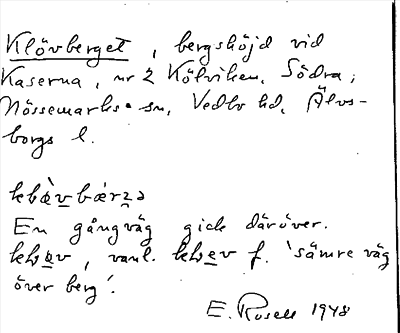 Klövberget, bergshöjd vid
Kaserna, nr 2 Kölviken, Södra,
Nössemarks sn, Vedbo hd, Älvs-
borgs l.
En gångväg gick däröver.
vanl. f. 'sämre väg
över berg'.
E. Rosell 1948